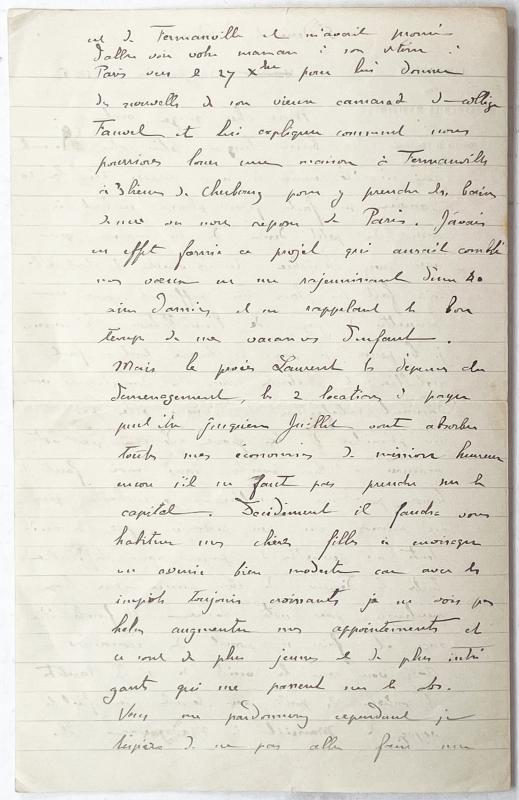 et de Fermanville et m'avait promis
d'aller voir votre maman à son retour à
Paris vers le 27 Xbre pour lui donner
des nouvelles de son vieux camarade de collège
Fauvel et lui expliquer comment nous
pourrions louer une maison à Fermanville
à 3 lieues de Cherbourg pour y prendre des bains
de mer ou nous reposer de Paris. J'avais
en effet formé ce projet qui aurait comblé
mes vœux en me rajeunissant d'un 40
aine d'années et me rappelant le bon
temps de mes vacances d'enfant.
Mais le procès Laurent les dépenses du
déménagement, les 2 locations à payer
jusqu'en Juillet vont absorber
toutes mes économies de mission heureux
encore s'il ne faut pas prendre sur le
capital. Décidément il faudra vous
habituer mes chères filles à envisager
un avenir bien modeste car avec les
impôts toujours croissants je ne vois pas
hélas augmenter mes appointements et
ce sont de plus jeunes et de plus intri
gants qui me passent sur le dos.
Vous me pardonnerez cependant je
l'espère de ne pas aller faire une